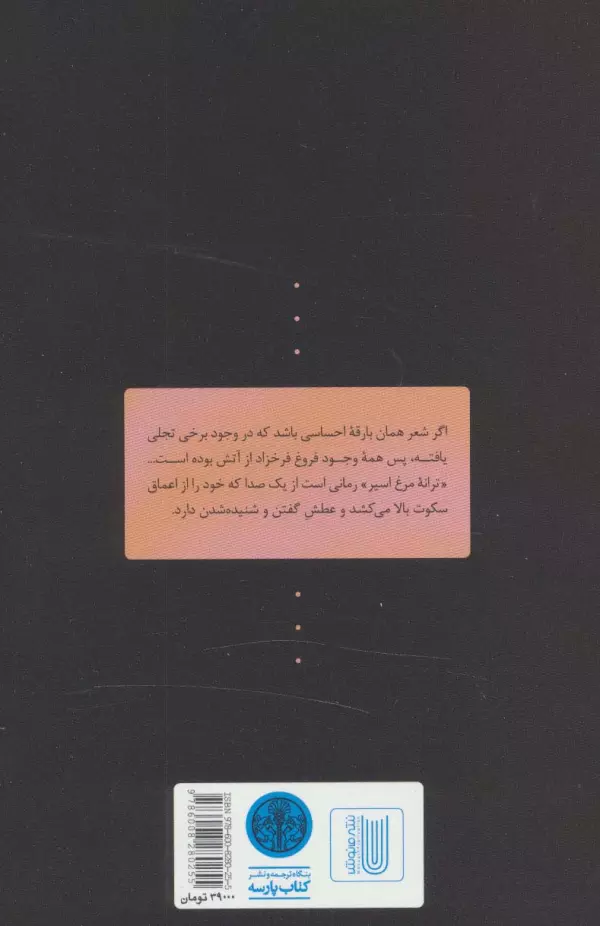 اگر شعر همان بارقهٔ احساسی باشد که در وجود برخی تجلی
یافتـــه، پس همهٔ وجـود فروغ فرخزاد از آتش بوده است...
«ترانهٔ مرغ اسیر» رمانی است از یک صدا که خود را از اعماق
سکوت بالا می‌کشد و عطشِ گفتن و شنیده‌شدن دارد.
ISBN 978-600-8280-25-5
9786008280255
بنگاه ترجمه و نشر
کتاب پارسه
۳۹۰۰۰ تومان